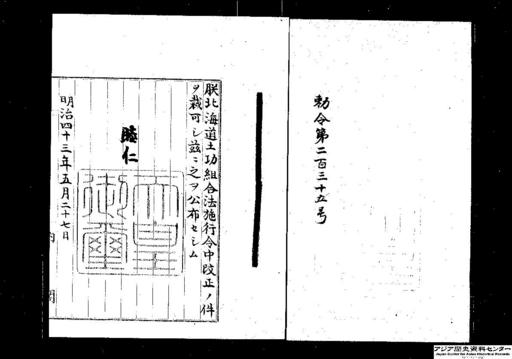 勅令第二百三十五号
朕北海道土功組合法施行令中改正ノ件
ヲ裁可シ茲ニ之ヲ公布セシム
睦仁
天皇御璽
明治四十三年五月二十七日
内閣
アジア歴史資料センター
Japan Center for Asian Historical Records